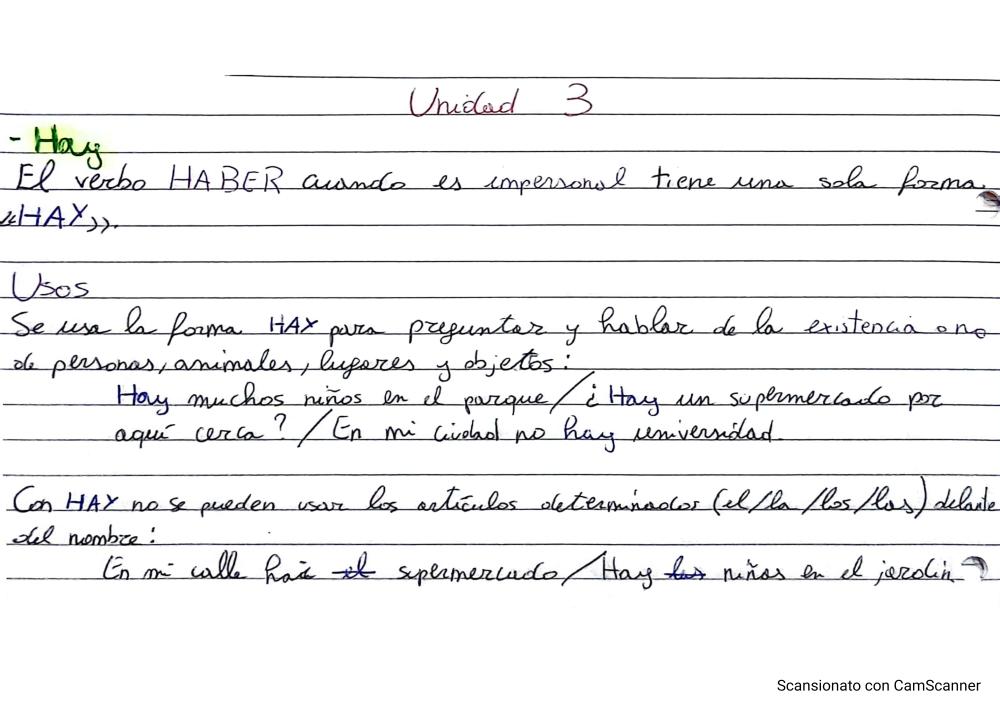 Unidad 3
- Hay
El verbo HABER cuando es impersonal tiene una sola forma
«HAY».
Usos
Se usa la forma HAY para preguntar y hablar de la existencia o no
de personas, animales, lugares y objetos:
Hay muchos niños en el parque / ¿Hay un supermercado por
aquí cerca? / En mi ciudad no hay universidad.
Con HAY no se pueden usar los artículos determinados (el/la/los/las) delante
del nombre:
En mi calle hai el supermercado / Hay los niños en el jardín
Scansionato con CamScanner